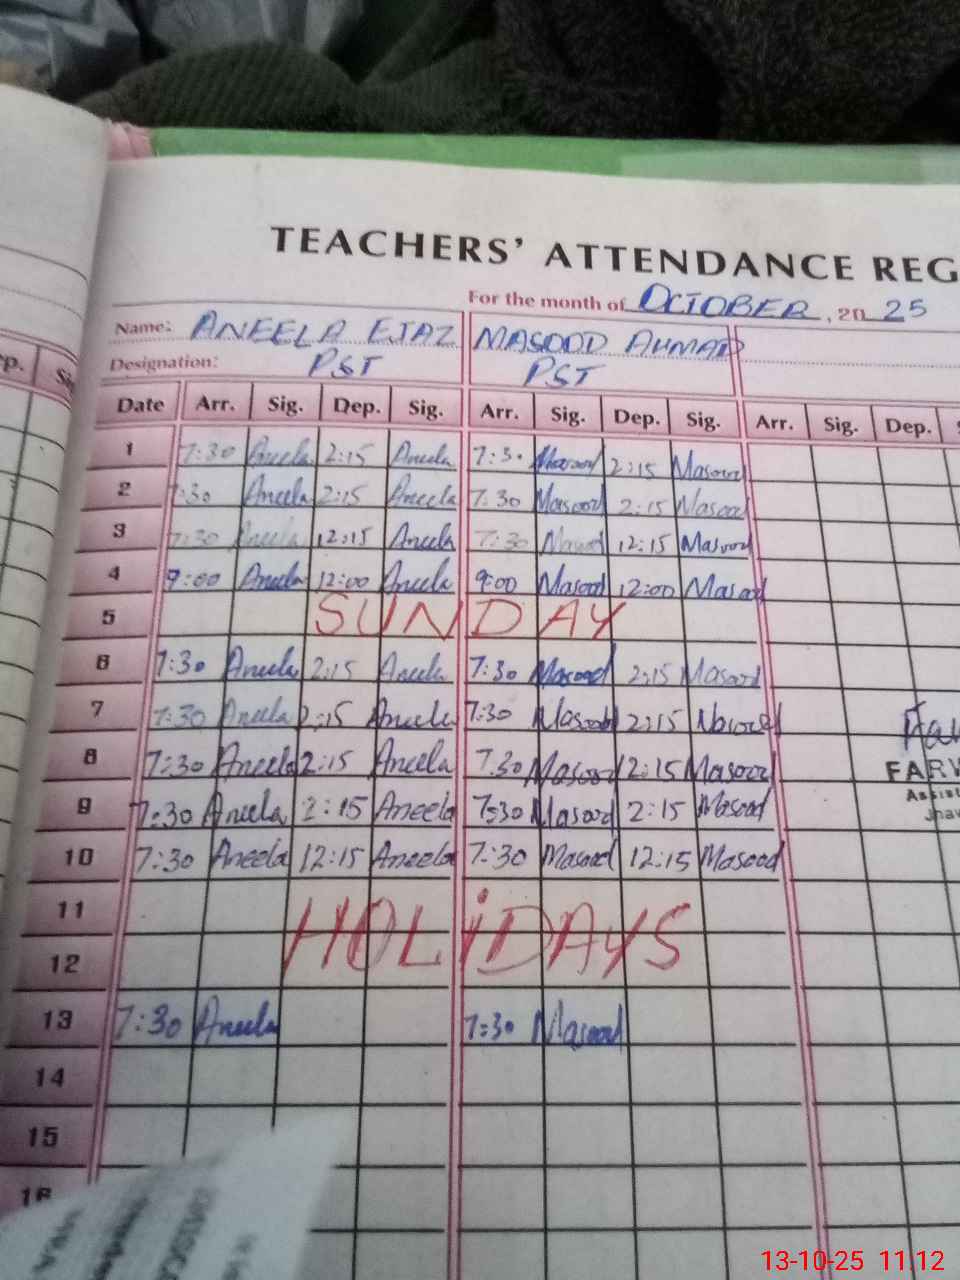 TEACHERS' ATTENDANCE REG
For the month of OCTOBER, 2025
Name: ANEELA EJAZ MASOOD AHMAD
Designation: PST PST
Date Arr. Sig. Dep. Sig. Arr. Sig. Dep. Sig. Arr. Sig. Dep.
1 7:30 Aneela 2:15 Aneela 7:30 Masood 2:15 Masood
2 7:30 Aneela 2:15 Aneela 7:30 Masood 2:15 Masood
3 7:30 Aneela 12:15 Aneela 7:30 Masood 12:15 Masood
4 9:00 Aneela 12:00 Aneela 9:00 Masood 12:00 Masood
5 SUNDAY
6 7:30 Aneela 2:15 Aneela 7:30 Masood 2:15 Masood
7 7:30 Aneela 2:15 Aneela 7:30 Masood 2:15 Masood
8 7:30 Aneela 2:15 Aneela 7:30 Masood 2:15 Masood
FARW
9 7:30 Aneela 2:15 Aneela 7:30 Masood 2:15 Masood
Assist
Jhav
10 7:30 Aneela 12:15 Aneela 7:30 Masood 12:15 Masood
11
HOLIDAYS
12
13 7:30 Aneela 7:30 Masood
14
15
16
13-10-25 11:12